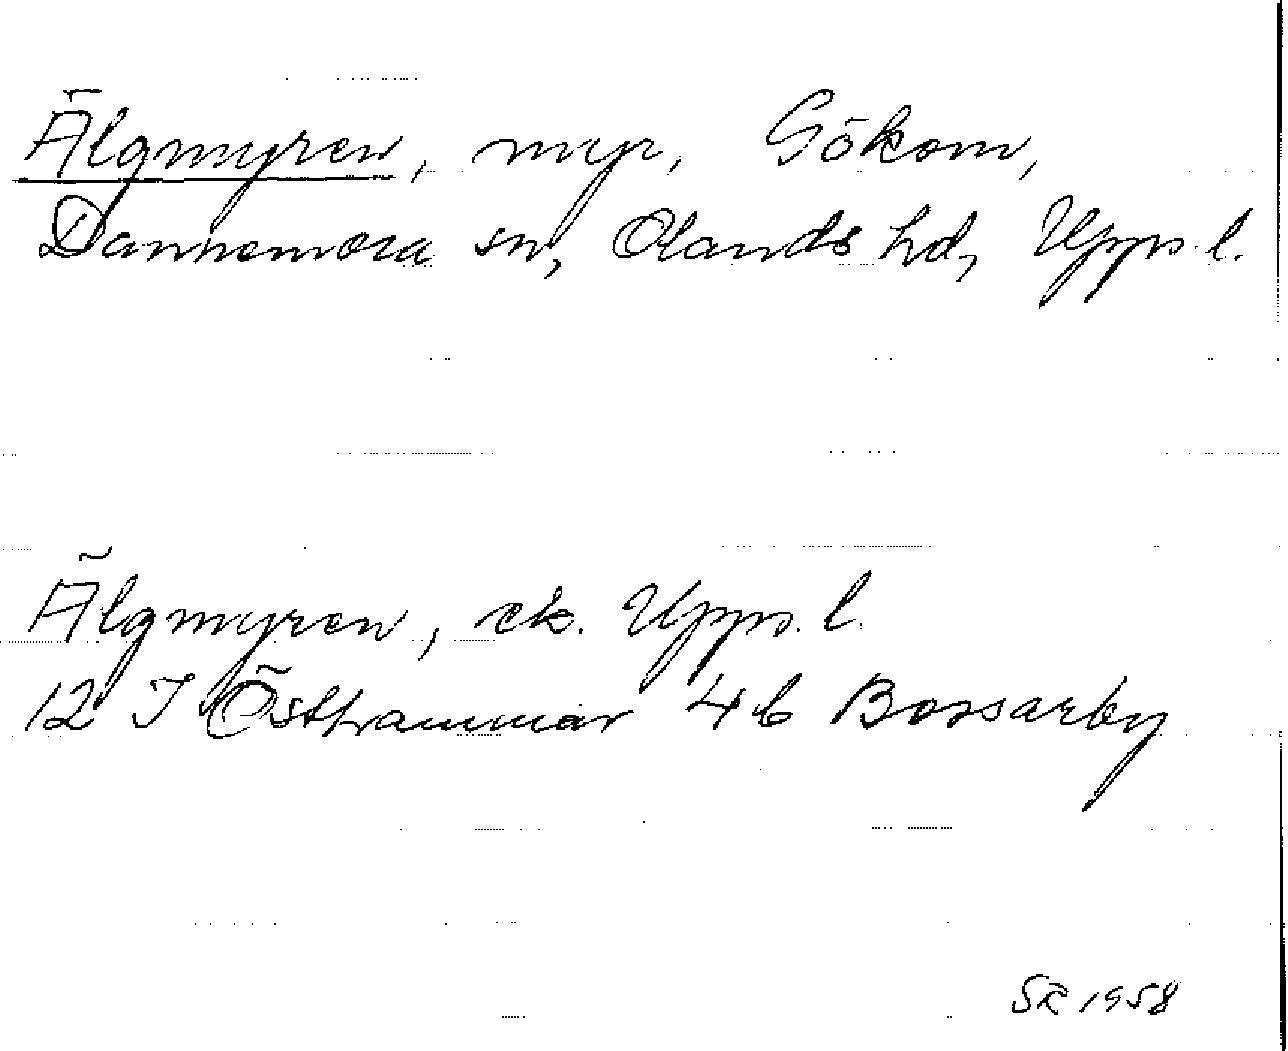 Älgmyren, myr, Gökom,
Dannemora sn, Olands hd, Upps. l.
Älgmyren, ek. Upps. l.
12 I Östhammar 4 b Bossarby
SR 1958